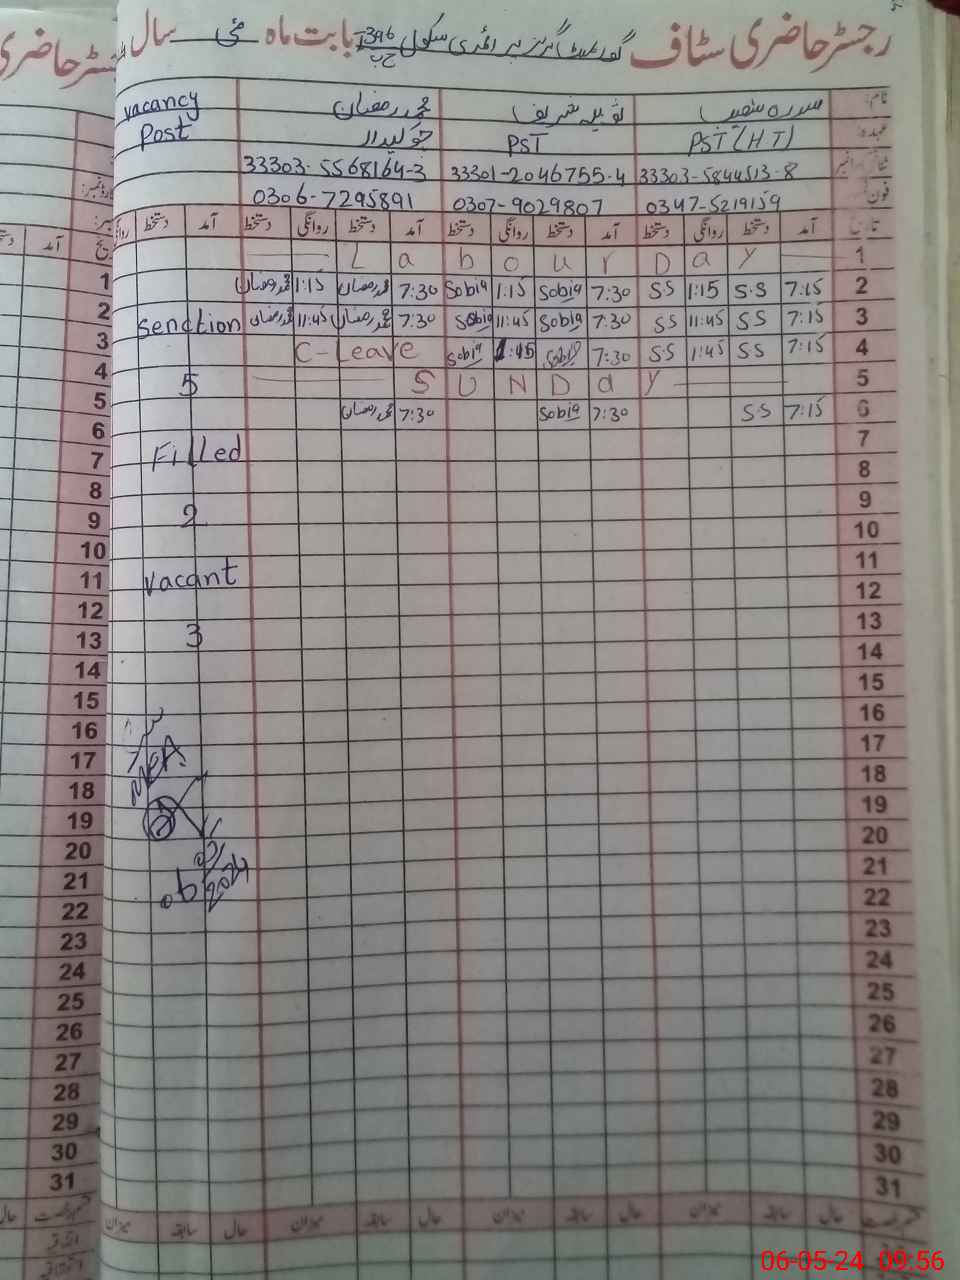 رجسٹر حاضری سٹاف گورنمنٹ گرلز پرائمری سکول 396 ج ب بابت ماہ مئی سال
نام: سدرہ ثوبیہ شریف محمد رمضان vacancy
عہدہ: PST (HT) PST چوکیدار Post
33303-5844513-8 33301-2046755-4 33303-5568164-3
فون 0347-5219159 0307-9029807 0306-7295891
تاریخ آمد دستخط روانگی دستخط آمد دستخط روانگی دستخط آمد دستخط روانگی دستخط آمد دستخط
1 Labour Day
2 7:15 S.S 1:15 SS 7:30 Sobia 1:15 Sobia 7:30 محمد رمضان 1:15 محمد رمضان
3 7:15 SS 11:45 SS 7:30 Sobia 11:45 Sobia 7:30 محمد رمضان 11:45 محمد رمضان senction
4 7:15 SS 1:45 SS 7:30 Sobia 1:45 Sobia C-Leave
5 SUNDay 5
6 7:15 SS 7:30 Sobia 7:30 محمد رمضان
7 Filled
8
9 2
10
11 vacant
12
13 3
14
15
16
17 MEA
18
19
20
21
22 06/05/2024
23
24
25
26
27
28
29
30
31
حال سابقہ میزان حال سابقہ میزان حال سابقہ میزان حال سابقہ میزان
رجسٹر حاضری
آمد
1
2
3
4
5
6
7
8
9
10
11
12
13
14
15
16
17
18
19
20
21
22
23
24
25
26
27
28
29
30
31
حال
06-05-24 09:56